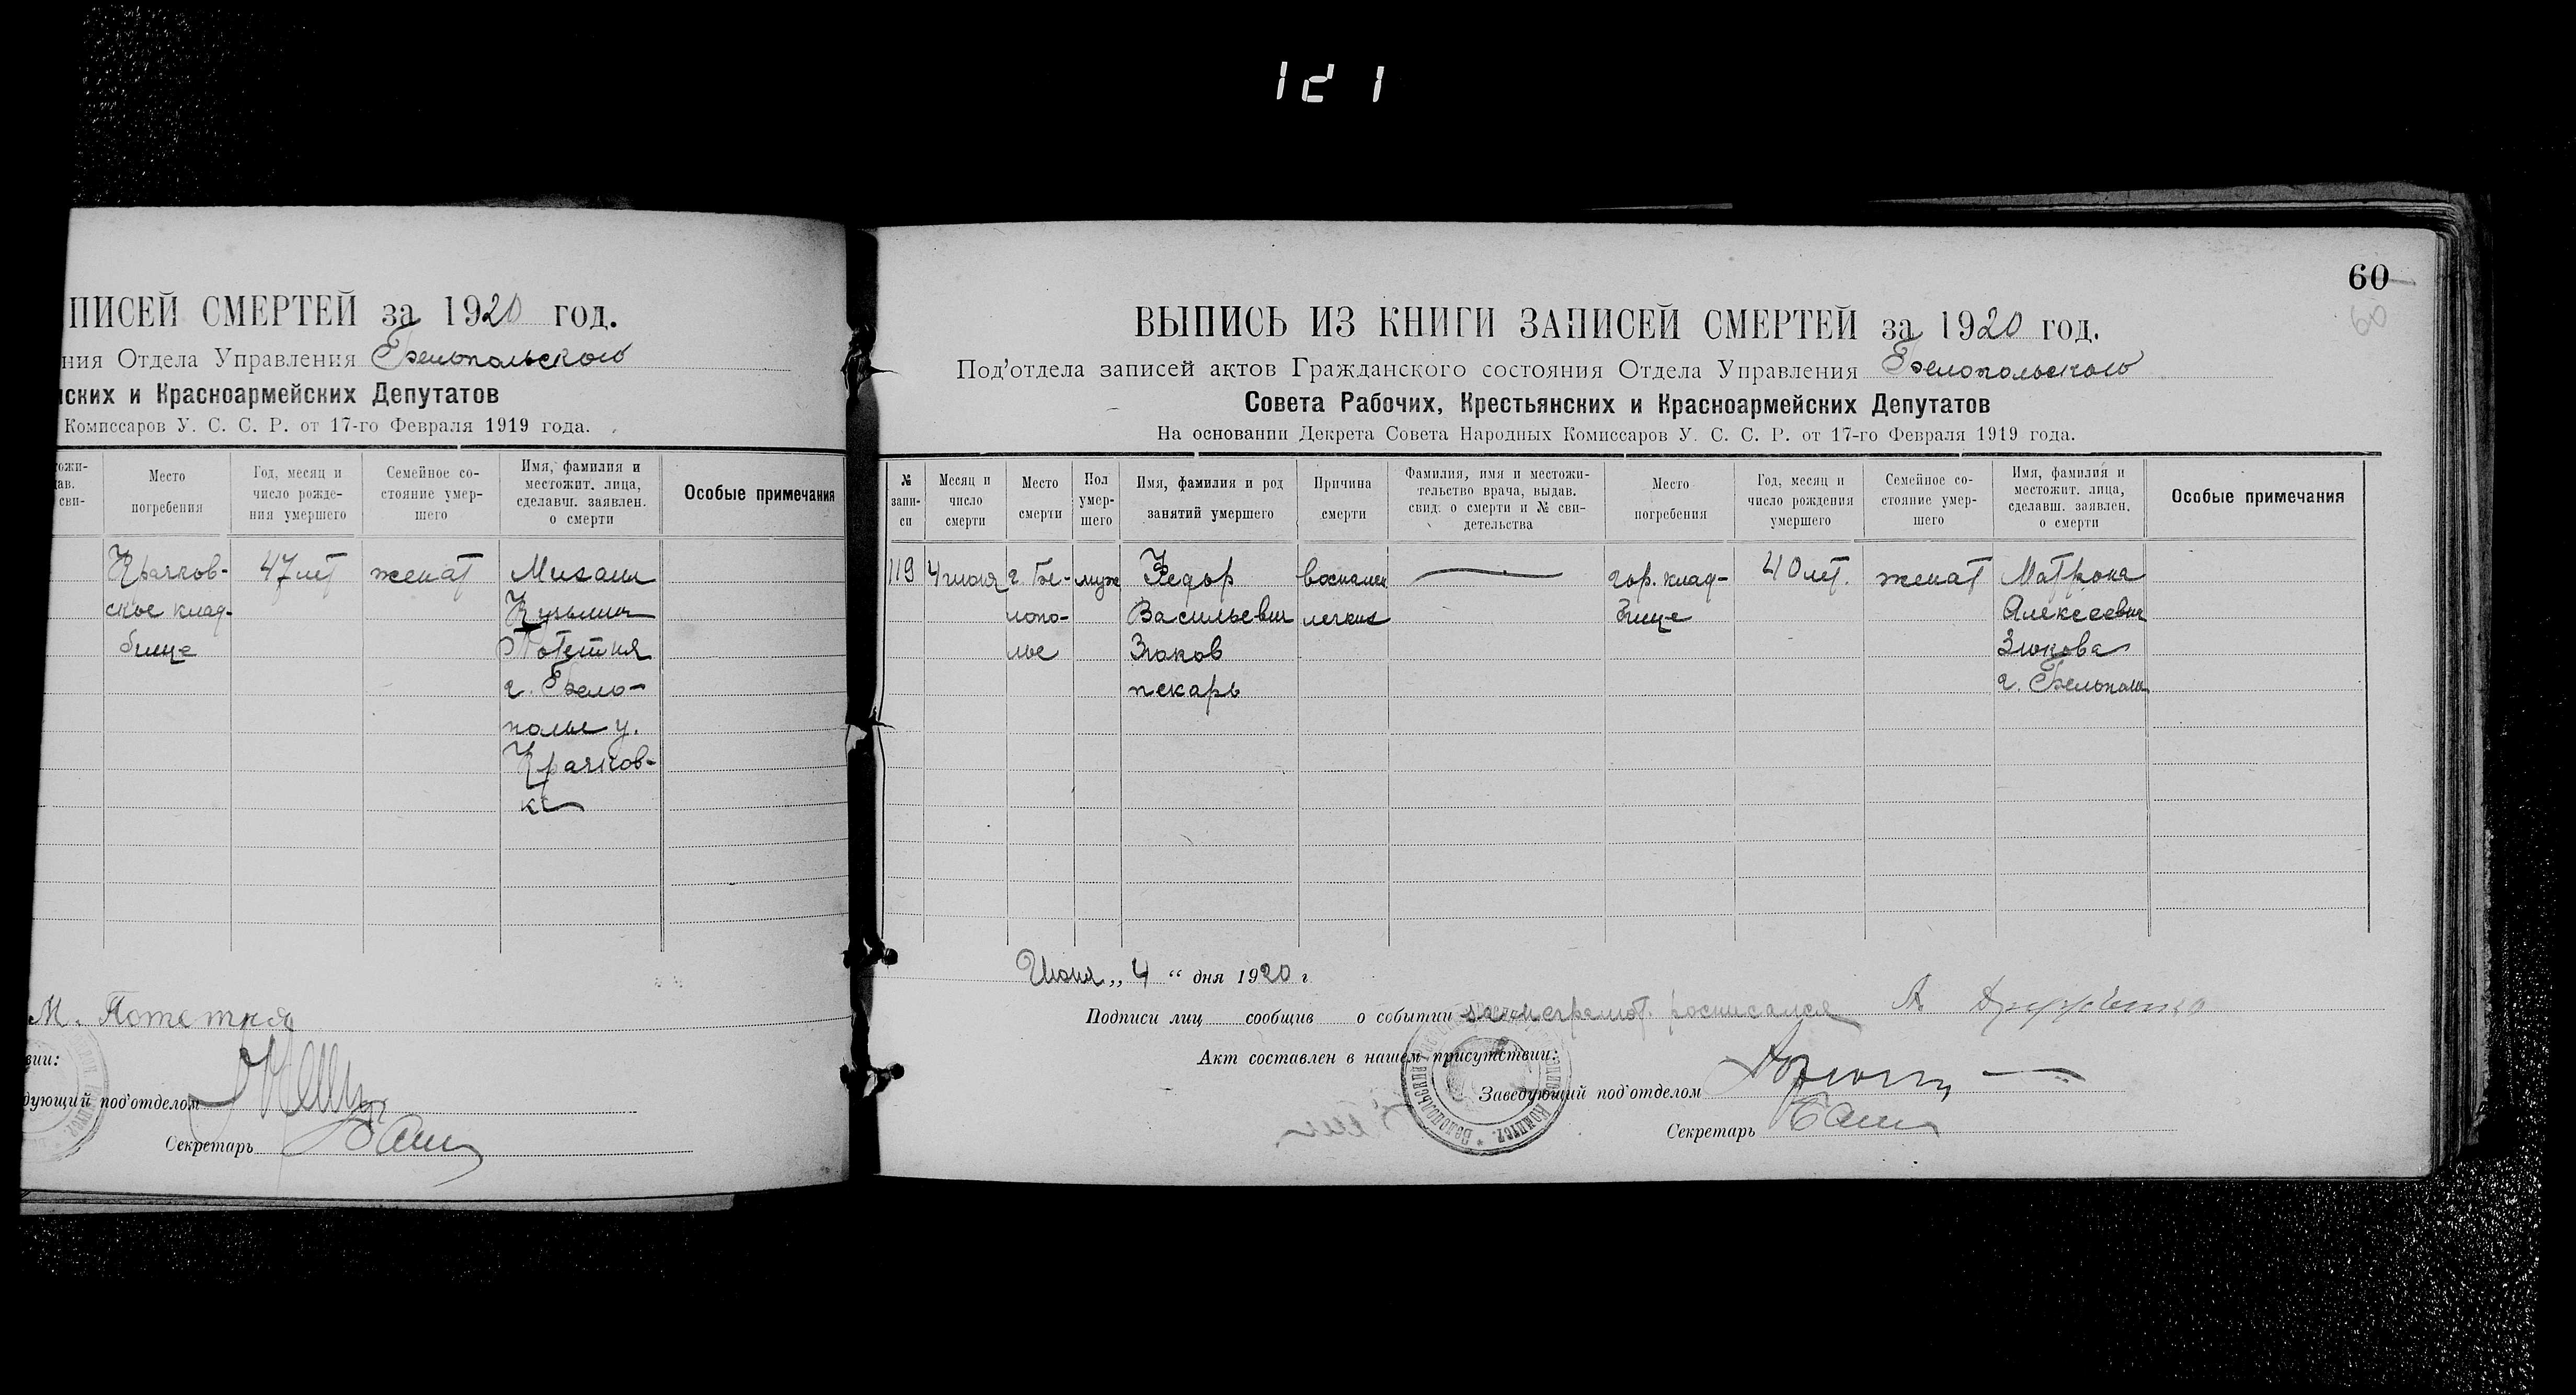 121
ПИСЕЙ СМЕРТЕЙ за 1920 год.
ния Отдела Управления Белопольского
нских и Красноармейских Депутатов
Комиссаров У. С. С. Р. от 17-го Февраля 1919 года.
ожи-
ав.
сви-
Место
погребения
Год, месяц и
число рожде-
ния умершего
Семейное со-
стояние умер-
шего
Имя, фамилия и
местожит. лица,
сделавш. заявлен.
о смерти
Особые примечания
Крячков-
ское клад-
бище
47 лет
женат
Михаил
Кузьмич
Потетня
г. Бело-
полье у.
Крячков-
ка
М. Потетня
вии:
дующий под'отделом
Секретарь
60
60
ВЫПИСЬ ИЗ КНИГИ ЗАПИСЕЙ СМЕРТЕЙ за 1920 год.
Под'отдела записей актов Гражданского состояния Отдела Управления Белопольского
Совета Рабочих, Крестьянских и Красноармейских Депутатов
На основании Декрета Совета Народных Комиссаров У. С. С. Р. от 17-го Февраля 1919 года.
№
запи-
си
Месяц и
число
смерти
Место
смерти
Пол
умер-
шего
Имя, фамилия и род
занятий умершего
Причина
смерти
Фамилия, имя и местожи-
тельство врача, выдав.
свид. о смерти и № сви-
детельства
Место
погребения
Год, месяц и
число рождения
умершего
Семейное со-
стояние умер-
шего
Имя, фамилия и
местожит. лица,
сделавш. заявлен.
о смерти
Особые примечания
119
4 июня
г. Бе-
лопо-
лье
муж
Федор
Васильевич
Зюков
пекарь
воспален
легких
гор. клад-
бище
40 лет.
женат
Матрона
Алексеевн
Зюкова
г. Белополье
Июня „ 4 “ дня 1920 г
Подписи лиц сообщив о событии за неграмот. росписался А
Акт составлен в нашем присутствии:
Заведующий под'отделом
Секретарь